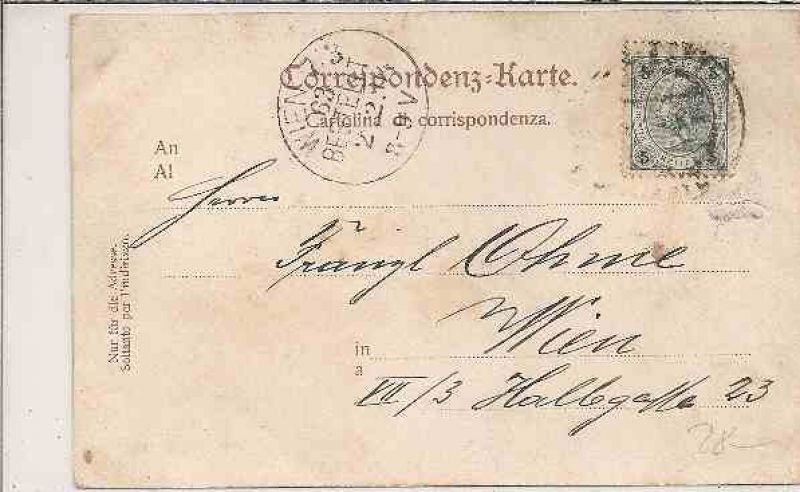 Correspondenz-Karte.
Cartolina di corrispondenza.
WIEN 7 3
63
BESTELLT
2. 2. 3
8-9 V
5 5
5 5
An
Al
Herrn
Franzl Ohme
Wien
in
a
VII/3 Halbgasse 23
Nur für die Adresse.
Soltanto per l'indirizzo.
28-